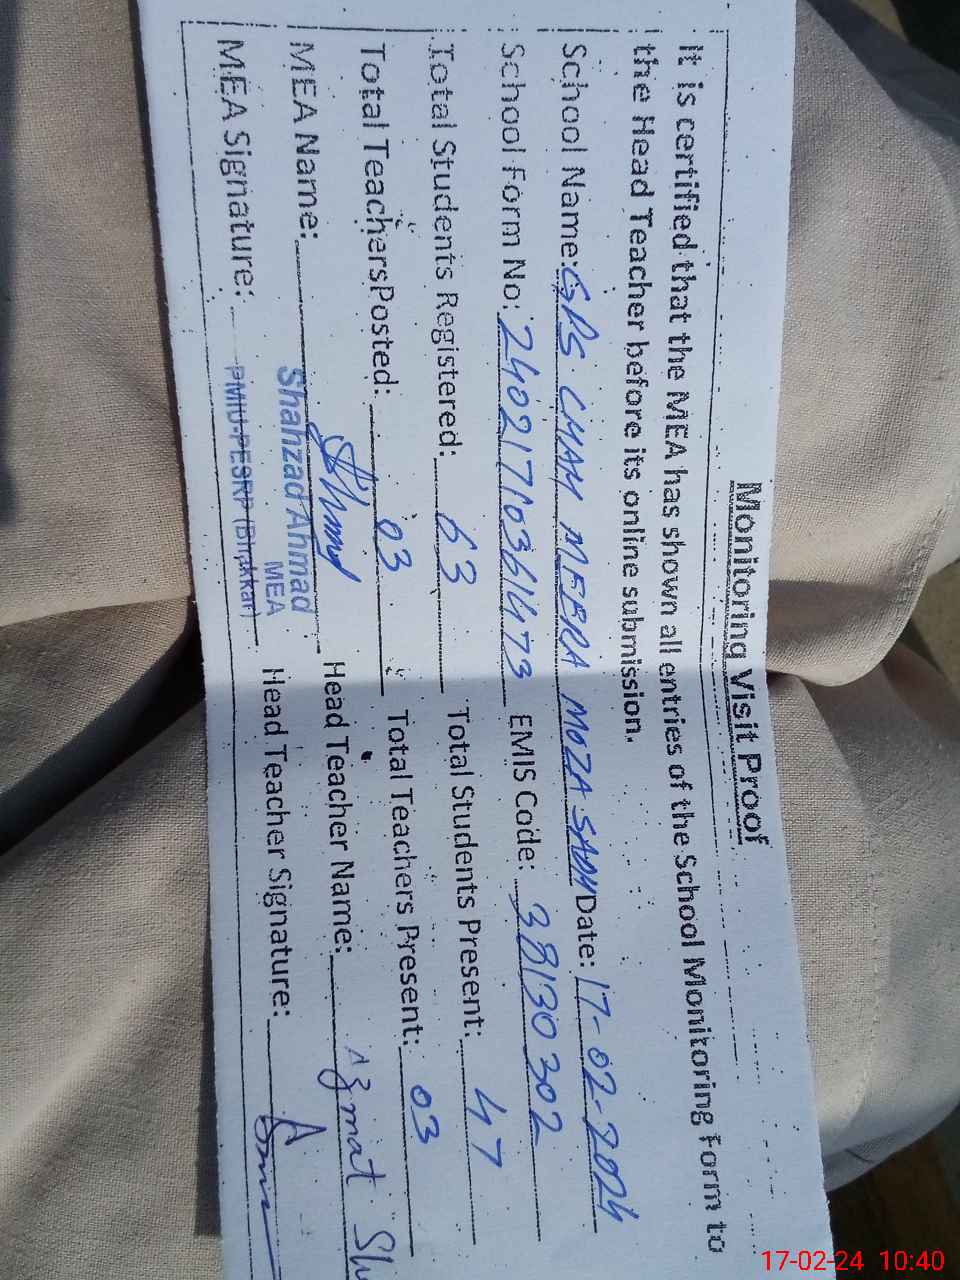 Monitoring Visit Proof
It is certified that the MEA has shown all entries of the School Monitoring Form to
the Head Teacher before its online submission.
School Name: GPS CHAH MEERA MOZA SADH Date: 17-02-2024
School Form No: EMIS Code: 38130302
Total Students Registered: 63 Total Students Present: 47
Total Teachers Posted: 03 Total Teachers Present: 03
MEA Name: Shahzad Ahmad Head Teacher Name: Azmat
MEA
MEA Signature: PMIU-PESRP (Bhakkar) Head Teacher Signature:
17-02-24 10:40